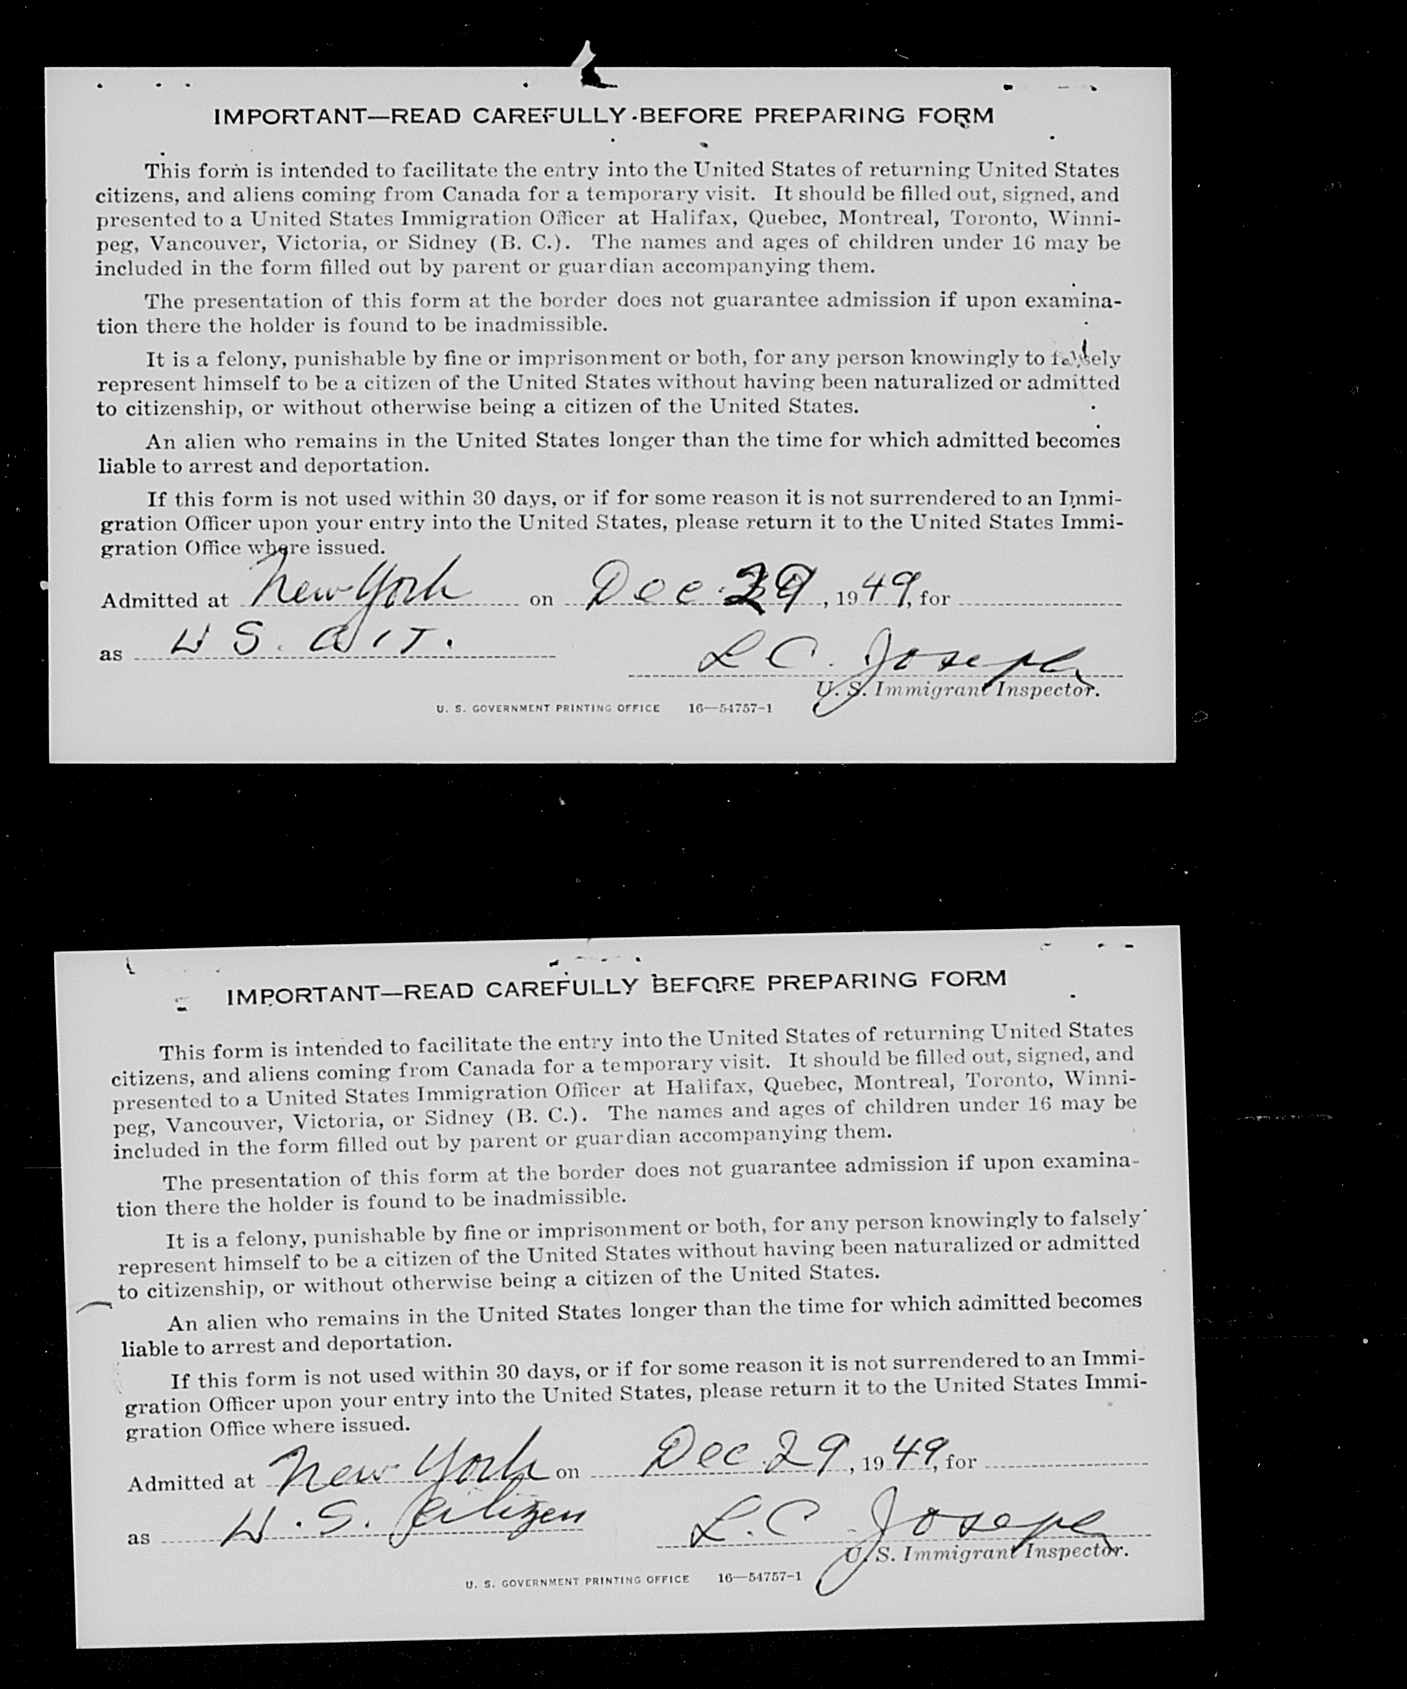 IMPORTANT—READ CAREFULLY BEFORE PREPARING FORM
This form is intended to facilitate the entry into the United States of returning United States
citizens, and aliens coming from Canada for a temporary visit. It should be filled out, signed, and
presented to a United States Immigration Officer at Halifax, Quebec, Montreal, Toronto, Winni-
peg, Vancouver, Victoria, or Sidney (B. C.). The names and ages of children under 16 may be
included in the form filled out by parent or guardian accompanying them.
The presentation of this form at the border does not guarantee admission if upon examina-
tion there the holder is found to be inadmissible.
It is a felony, punishable by fine or imprisonment or both, for any person knowingly to falsely
represent himself to be a citizen of the United States without having been naturalized or admitted
to citizenship, or without otherwise being a citizen of the United States.
An alien who remains in the United States longer than the time for which admitted becomes
liable to arrest and deportation.
If this form is not used within 30 days, or if for some reason it is not surrendered to an Immi-
gration Officer upon your entry into the United States, please return it to the United States Immi-
gration Office where issued.
Admitted at New York on Dec. 29, 1949, for
as U S. CIT.
L C. Joseph
U. S. Immigrant Inspector.
U. S. GOVERNMENT PRINTING OFFICE 16—54757-1
IMPORTANT—READ CAREFULLY BEFORE PREPARING FORM
This form is intended to facilitate the entry into the United States of returning United States
citizens, and aliens coming from Canada for a temporary visit. It should be filled out, signed, and
presented to a United States Immigration Officer at Halifax, Quebec, Montreal, Toronto, Winni-
peg, Vancouver, Victoria, or Sidney (B. C.). The names and ages of children under 16 may be
included in the form filled out by parent or guardian accompanying them.
The presentation of this form at the border does not guarantee admission if upon examina-
tion there the holder is found to be inadmissible.
It is a felony, punishable by fine or imprisonment or both, for any person knowingly to falsely
represent himself to be a citizen of the United States without having been naturalized or admitted
to citizenship, or without otherwise being a citizen of the United States.
An alien who remains in the United States longer than the time for which admitted becomes
liable to arrest and deportation.
If this form is not used within 30 days, or if for some reason it is not surrendered to an Immi-
gration Officer upon your entry into the United States, please return it to the United States Immi-
gration Office where issued.
Admitted at New York on Dec. 29, 1949, for
as U. S. Citizen
L. C. Joseph
U. S. Immigrant Inspector.
U. S. GOVERNMENT PRINTING OFFICE 16—54757-1